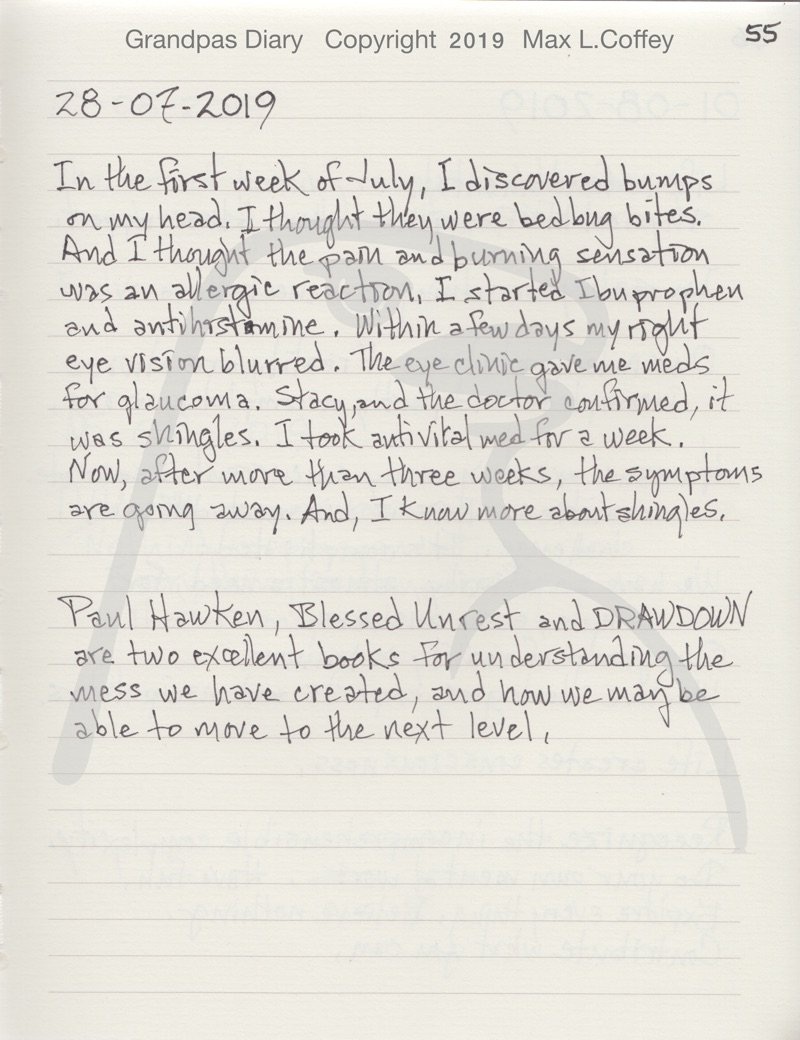 Grandpas Diary Copyright 2019 Max L.Coffey
55
28-07-2019
In the first week of July, I discovered bumps
on my head. I thought they were bedbug bites.
And I thought the pain and burning sensation
was an allergic reaction, I started Ibuprophen
and antihistamine. Within a few days my right
eye vision blurred. The eye clinic gave me meds
for glaucoma. Stacy, and the doctor confirmed, it
was shingles. I took antivital med for a week.
Now, after more than three weeks, the symptoms
are going away. And, I know more about shingles.
Paul Hawken, Blessed Unrest and DRAWDOWN
are two excellent books for understanding the
mess we have created, and how we may be
able to move to the next level.